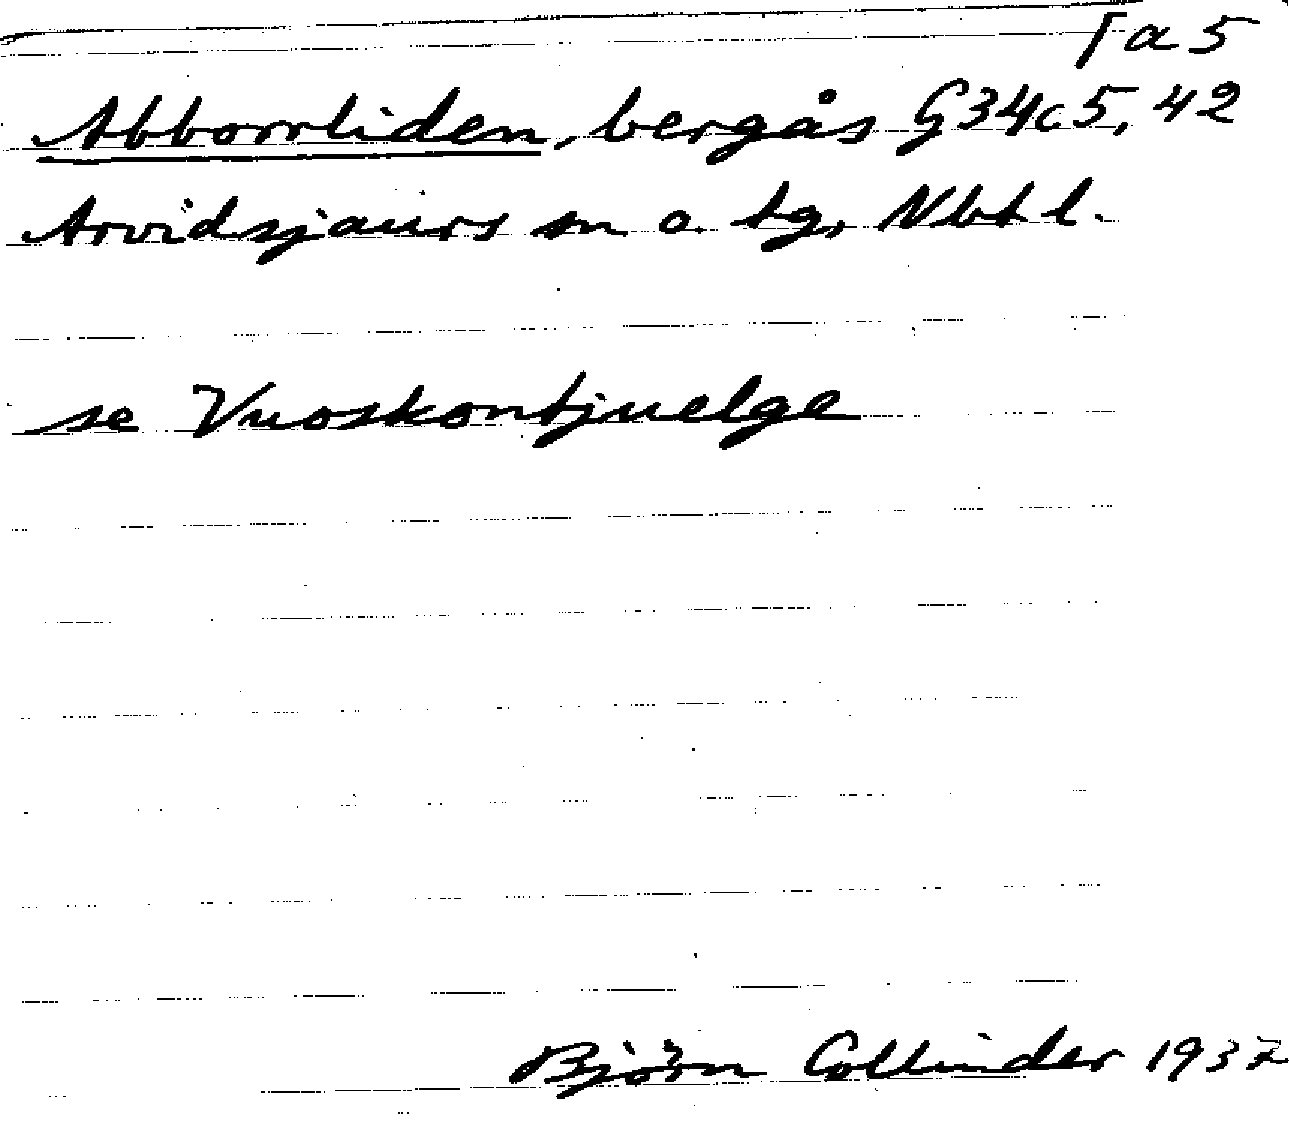 Fa 5
Abborrliden, bergås G34c5, 42
Arvidsjaurs sn o. tg, Nbtl.
se Vuoskontjuelge
Björn Collinder 1937